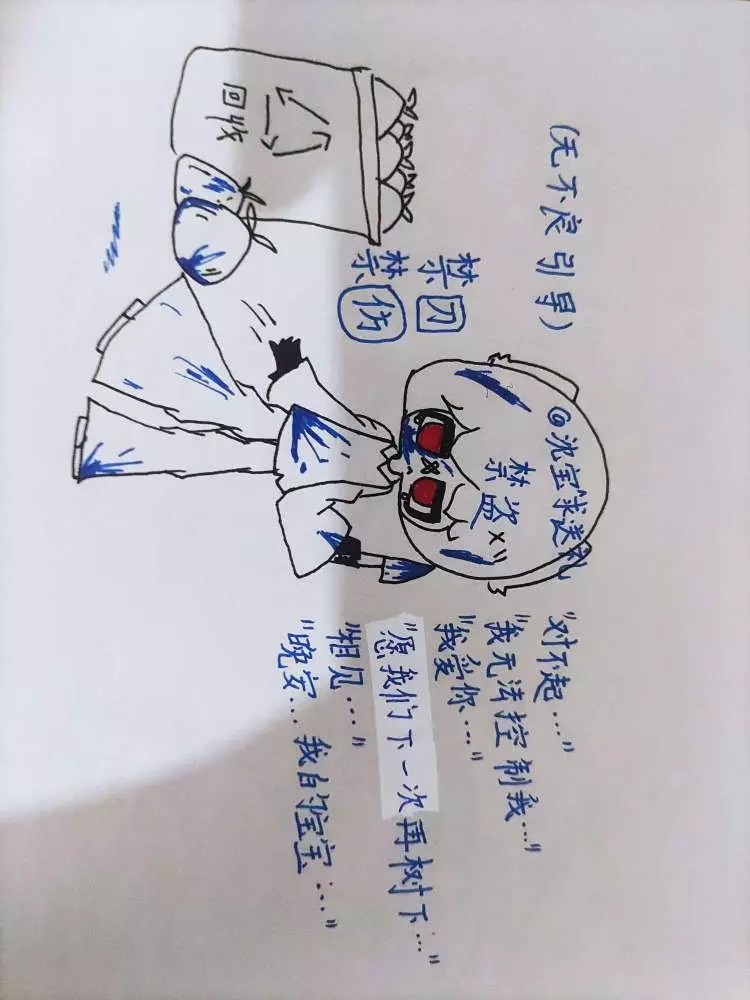 （无不良引导）
回收
禁刀
禁伪
@沈宝求送礼
禁盗
"对不起...."
"我无法控制我...."
"我爱你...."
"愿我们下一次再树下...."
"相见...."
"晚安...我的宝宝...."